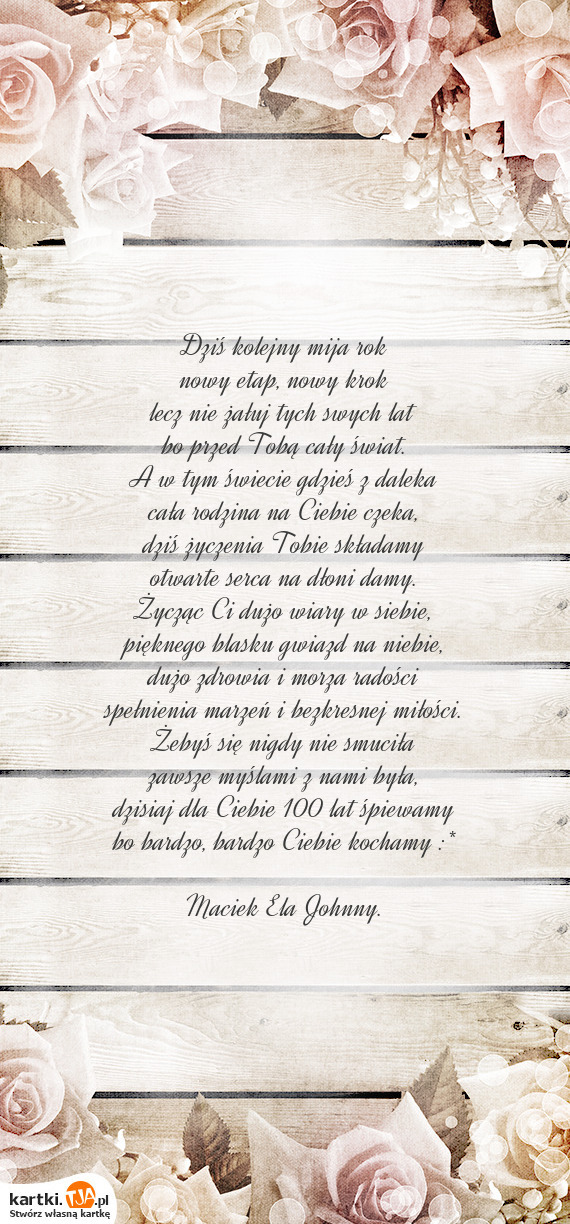 Dziś kolejny mija rok
nowy etap, nowy krok
lecz nie żałuj tych swych lat
bo przed Tobą cały świat.
A w tym świecie gdzieś z daleka
cała rodzina na Ciebie czeka,
dziś życzenia Tobie składamy
otwarte serca na dłoni damy.
Życząc Ci dużo wiary w siebie,
pięknego blasku gwiazd na niebie,
dużo zdrowia i morza radości
spełnienia marzeń i bezkresnej miłości.
Żebyś się nigdy nie smuciła
zawsze myślami z nami była,
dzisiaj dla Ciebie 100 lat śpiewamy
bo bardzo, bardzo Ciebie kochamy :*
Maciek Ela Johnny.
kartki.TJA.pl
Stwórz własną kartkę